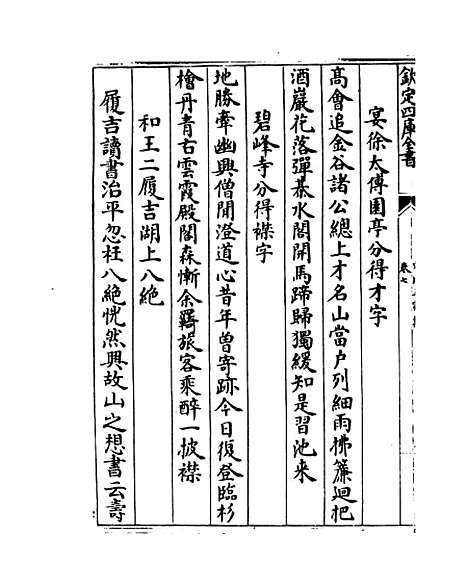 欽定四庫全書
卷七
宴徐太傅園亭分得才字
高會追金谷諸公總上才名山當户列細雨拂簾迴杷
酒巖花落彈棊水閣開馬蹄歸獨緩知是習池來
碧峰寺分得襟字
地勝牽幽興僧閒澄道心昔年曽寄跡今日復登臨杉
檜丹青古雲霞殿閣森慚余羇旅客乘醉一披襟
和王二履吉湖上八絶
履吉讀書治平忽枉八絶恍然興故山之想書云壽